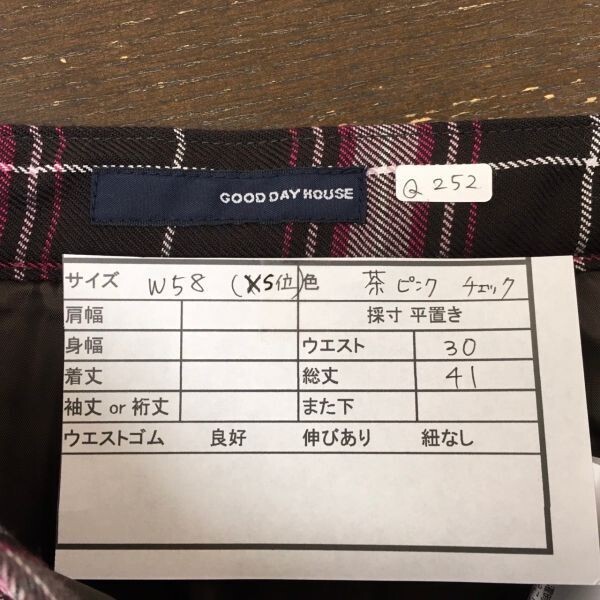 GOOD DAY HOUSE
Q 252
サイズ W58 (XS位) 色 茶 ピンク チェック
肩幅 採寸 平置き
身幅 ウエスト 30
着丈 総丈 41
袖丈 or 裄丈 また下
ウエストゴム 良好 伸びあり 紐なし